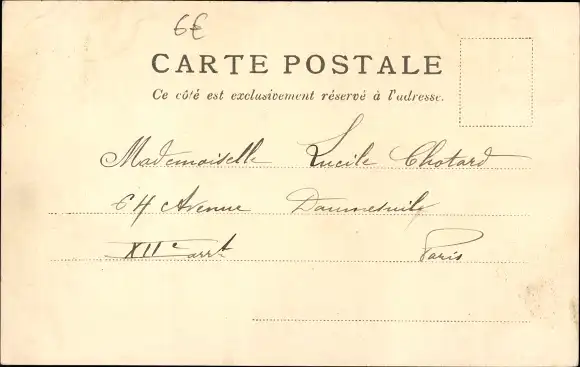 6€
CARTE POSTALE
Ce côté est exclusivement réservé à l'adresse.
Mademoiselle Lucile Chotard
64 Avenue Daumesnil
XIIe arrt Paris